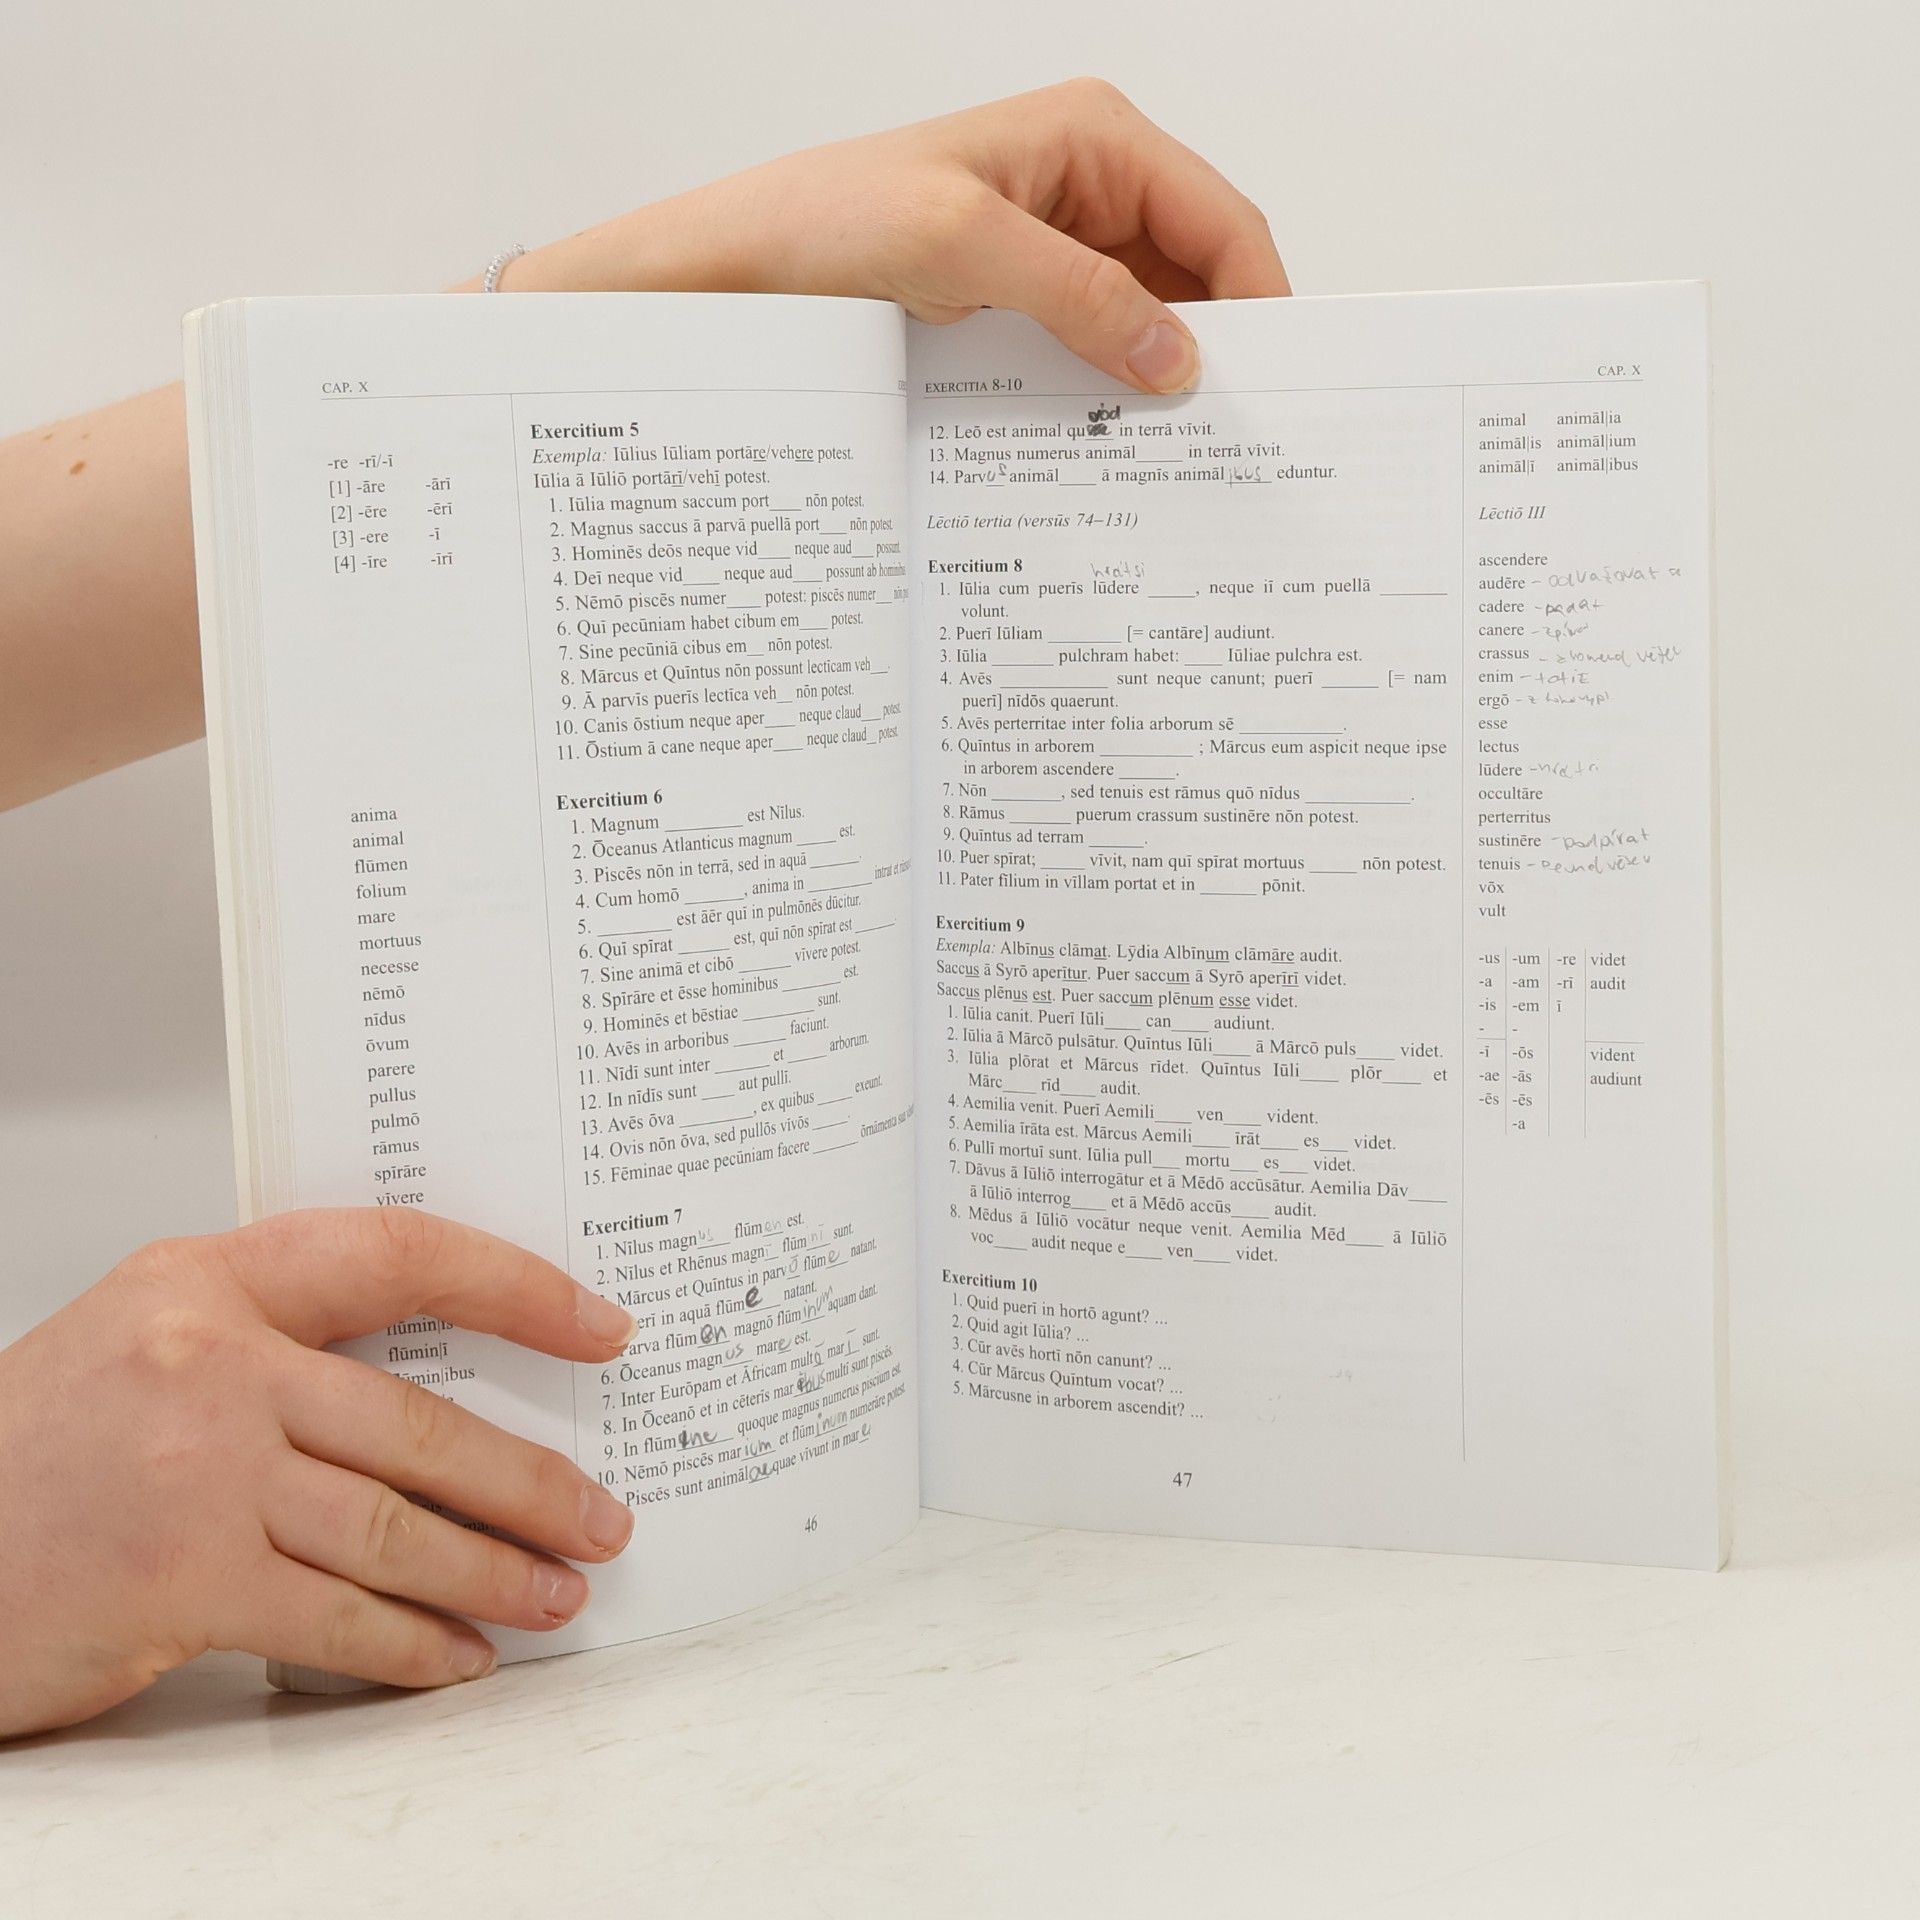 CAP. X
-re -rī/-ī
[1] -āre -ārī
[2] -ēre -ērī
[3] -ere -ī
[4] -īre -īrī
anima
animal
flūmen
folium
mare
mortuus
necesse
nēmō
nīdus
ōvum
parere
pullus
pulmō
rāmus
spīrāre
vīvere
flūmin|is
flūmin|ī
flūmin|ibus
Exercitium 5
Exempla: Iūlius Iūliam portāre/vehere potest.
Iūlia ā Iūliō portārī/vehī potest.
1. Iūlia magnum saccum port____ nōn potest.
2. Magnus saccus ā parvā puellā port____ nōn potest.
3. Hominēs deōs neque vid____ neque aud___ possunt.
4. Deī neque vid____ neque aud____ possunt ab hominibus
5. Nēmō piscēs numer____ potest: piscēs numer___
6. Quī pecūniam habet cibum em___ potest.
7. Sine pecūniā cibus em__ nōn potest.
8. Mārcus et Quīntus nōn possunt lectīcam veh__.
9. Ā parvīs puerīs lectīca veh__ nōn potest.
10. Canis ōstium neque aper____ neque claud__ potest.
11. Ōstium ā cane neque aper____ neque claud__ potest.
Exercitium 6
1. Magnum ________ est Nīlus.
2. Ōceanus Atlanticus magnum _____ est.
3. Piscēs nōn in terrā, sed in aquā ______.
4. Cum homō ______, anima in _______ intrat et
5. ________ est āēr quī in pulmōnēs dūcitur.
6. Quī spīrat ______ est, quī nōn spīrat est _____.
7. Sine animā et cibō ______ vīvere potest.
8. Spīrāre et ēsse hominibus ______ est.
9. Hominēs et bēstiae ________ sunt.
10. Avēs in arboribus ______ faciunt.
11. Nīdī sunt inter ______ et ____ arborum.
12. In nīdīs sunt ____ aut pullī.
13. Avēs ōva ________, ex quibus ____ exeunt.
14. Ovis nōn ōva, sed pullōs vīvōs _____.
15. Fēminae quae pecūniam facere ______ ōrnāmenta sua
Exercitium 7
1. Nīlus magnus flūmen est.
2. Nīlus et Rhēnus magnī flūminī sunt.
Mārcus et Quīntus in parvō flūme natant.
erī in aquā flūme natant.
arva flūmen magnō flūminum aquam dant.
6. Ōceanus magnus mare est.
7. Inter Eurōpam et Āfricam multō marī sunt.
8. In Ōceanō et in cēterīs maribus multī sunt piscēs.
9. In flūmine quoque magnus numerus piscium est.
10. Nēmō piscēs marium et flūminum numerāre potest.
Piscēs sunt animālae quae vīvunt in mare
46
EXERCITIA 8-10
CAP. X
12. Leō est animal quod in terrā vīvit.
13. Magnus numerus animāl_____ in terrā vīvit.
14. Parvus animāl____ ā magnīs animālibus eduntur.
Lēctiō tertia (versūs 74–131)
Exercitium 8
hrátsi
1. Iūlia cum puerīs lūdere _____, neque iī cum puellā _______
volunt.
2. Puerī Iūliam ________ [= cantāre] audiunt.
3. Iūlia _______ pulchram habet: ____ Iūliae pulchra est.
4. Avēs ____________ sunt neque canunt; puerī ______ [= nam
puerī] nīdōs quaerunt.
5. Avēs perterritae inter folia arborum sē ___________.
6. Quīntus in arborem __________ ; Mārcus eum aspicit neque ipse
in arborem ascendere ______.
7. Nōn ________, sed tenuis est rāmus quō nīdus ___________.
8. Rāmus _______ puerum crassum sustinēre nōn potest.
9. Quīntus ad terram ______.
10. Puer spīrat; _____ vīvit, nam quī spīrat mortuus _____ nōn potest.
11. Pater fīlium in vīllam portat et in ______ pōnit.
Exercitium 9
Exempla: Albīnus clāmat. Lȳdia Albīnum clāmāre audit.
Saccus ā Syrō aperītur. Puer saccum ā Syrō aperīrī videt.
Saccus plēnus est. Puer saccum plēnum esse videt.
1. Iūlia canit. Puerī Iūli____ can____ audiunt.
2. Iūlia ā Mārcō pulsātur. Quīntus Iūli____ ā Mārcō puls____ videt.
3. Iūlia plōrat et Mārcus rīdet. Quīntus Iūli____ plōr____ et
Mārc____ rīd____ audit.
4. Aemilia venit. Puerī Aemili____ ven____ vident.
5. Aemilia īrāta est. Mārcus Aemili____ īrāt____ es___ videt.
6. Pullī mortuī sunt. Iūlia pull___ mortu___ es___ videt.
7. Dāvus ā Iūliō interrogātur et ā Mēdō accūsātur. Aemilia Dāv____
ā Iūliō interrog____ et ā Mēdō accūs____ audit.
8. Mēdus ā Iūliō vocātur neque venit. Aemilia Mēd____ ā Iūliō
voc____ audit neque e____ ven____ videt.
Exercitium 10
1. Quid puerī in hortō agunt? ...
2. Quid agit Iūlia? ...
3. Cūr avēs hortī nōn canunt? ...
4. Cūr Mārcus Quīntum vocat? ...
5. Mārcusne in arborem ascendit? ...
47
animal animāl|ia
animāl|is animāl|ium
animāl|ī animāl|ibus
Lēctiō III
ascendere
audēre - odvažovat
cadere - padat
canere
crassus
enim - totiž
ergō
esse
lectus
lūdere
occultāre
perterritus
sustinēre - podpírat
tenuis
vōx
vult
-us -um -re videt
-a -am -rī audit
-is -em ī
- -
-ī -ōs vident
-ae -ās audiunt
-ēs -ēs
-a